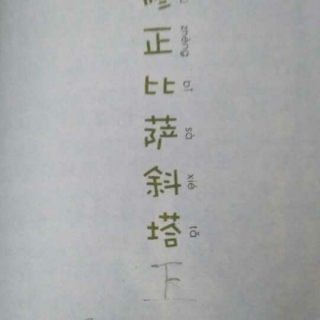 修正比萨斜塔下
zhèng bǐ sà xié tǎ